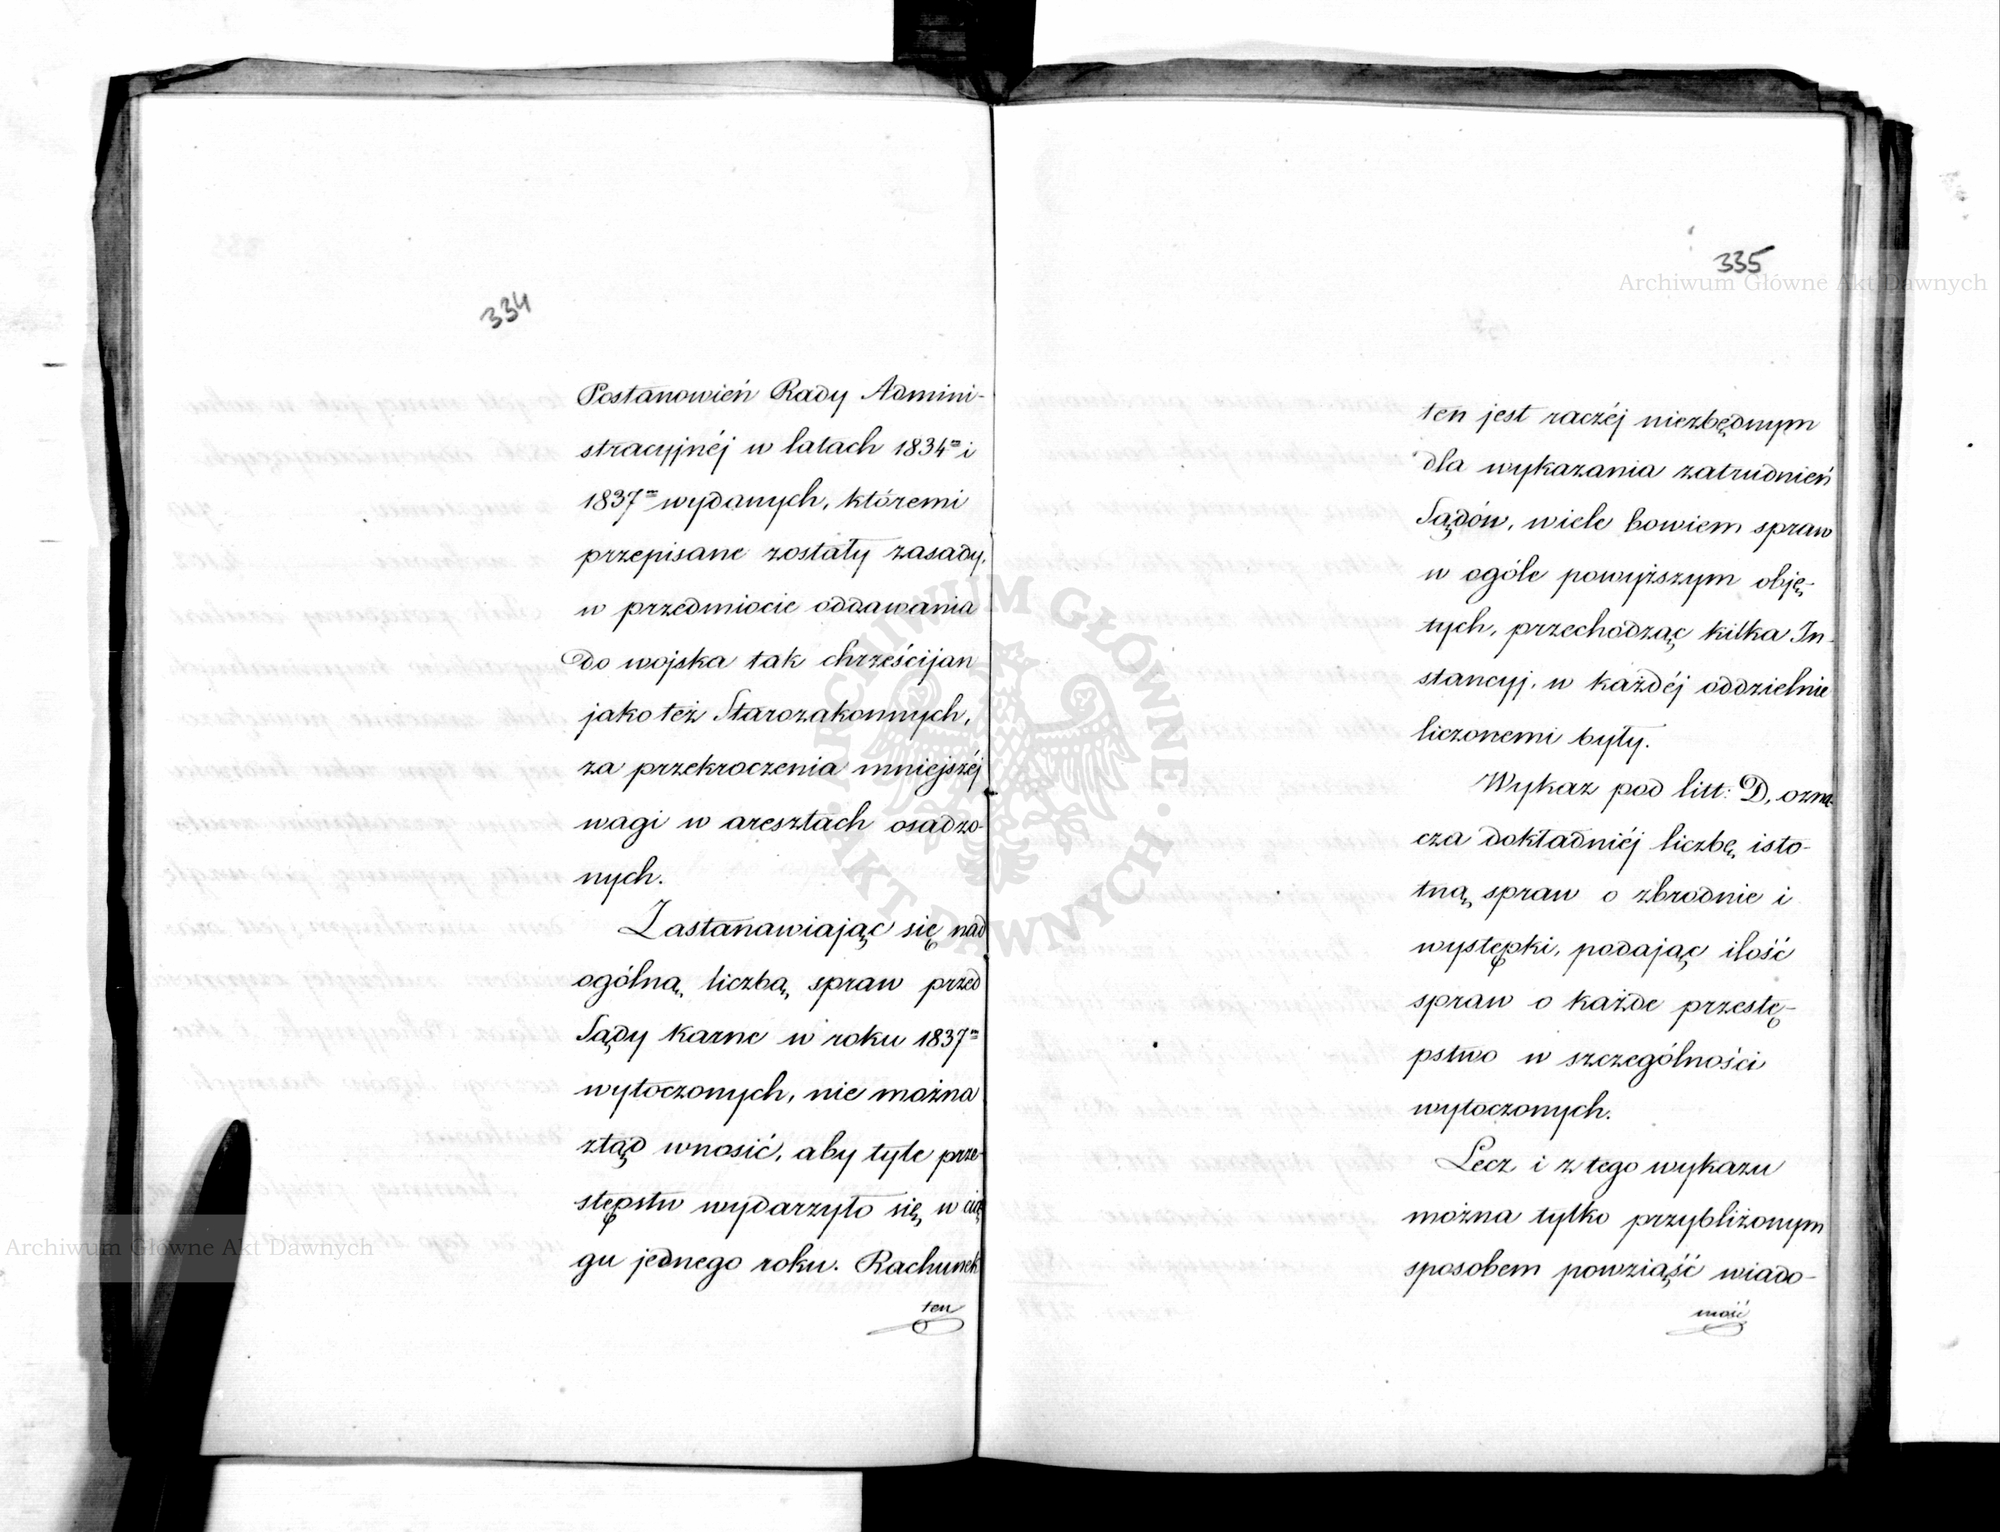 334
Postanowień Rady Admini-
stracyjnéj w latach 1834ᵐ i
1837ᵐ wydanych, któremi
przepisane zostały zasady,
w przedmiocie oddawania
do wojska tak chrześcijan
jako też Starozakonnych,
za przekroczenia mniejszéj
wagi w aresztach osadzo-
nych.
Zastanawiając się nad
ogólną liczbą spraw przed
Sądy karne w roku 1837ᵐ
wytoczonych, nie można
ztąd wnosić, aby tyle prze-
stępstw wydarzyło się w cią
gu jednego roku. Rachunek
ten
335
ten jest raczéj niezbędnym
dla wykazania zatrudnień
Sądów, wiele bowiem spraw
w ogóle powyższym obję-
tych, przechodząc kilka In-
stancyj, w każdéj oddzielnie
liczonemi były.
Wykaz pod litt: D, ozna-
cza dokładniéj liczbę isto-
tną spraw o zbrodnie i
występki, podając ilość
spraw o każde przestę-
pstwo w szczególności
wytoczonych.
Lecz i z tego wykazu
można tylko przybliżonym
sposobem powziąść wiado-
mość
Archiwum Główne Akt Dawnych
Archiwum Główne Akt Dawnych
ARCHIWUM GŁÓWNE · AKT DAWNYCH ·